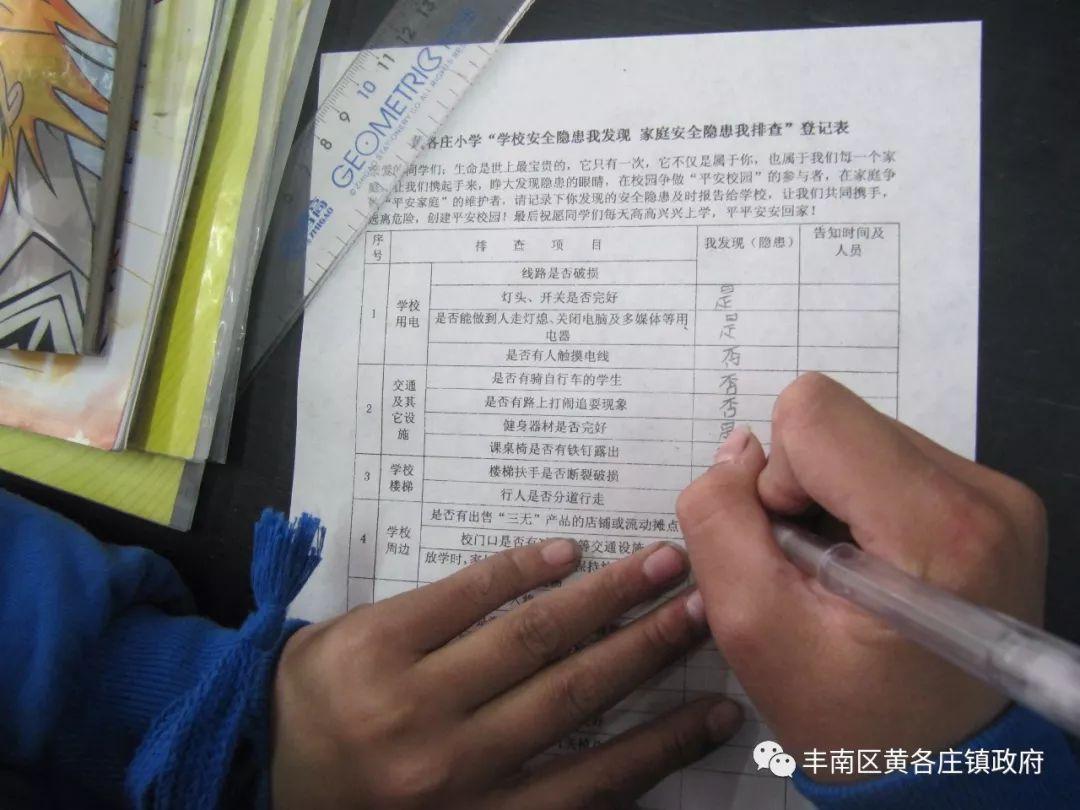 各庄小学“学校安全隐患我发现 家庭安全隐患我排查”登记表
同学们：生命是世上最宝贵的，它只有一次，它不仅是属于你，也属于我们每一个家
让我们携起手来，睁大发现隐患的眼睛，在校园争做“平安校园”的参与者，在家庭争
“平安家庭”的维护者，请记录下你发现的安全隐患及时报告给学校，让我们共同携手，
远离危险，创建平安校园！最后祝愿同学们每天高高兴兴上学，平平安安回家！
序号 排 查 项 目 我发现（隐患） 告知时间及人员
1 学校用电 线路是否破损
灯头、开关是否完好 是
是否能做到人走灯熄、关闭电脑及多媒体等用电器 是
是否有人触摸电线 否
2 交通及其它设施 是否有骑自行车的学生 否
是否有路上打闹追耍现象 否
健身器材是否完好
课桌椅是否有铁钉露出
3 学校楼梯 楼梯扶手是否断裂破损
行人是否分道行走
4 学校周边 是否有出售“三无”产品的店铺或流动摊点
校门口是否有 等交通设施
放学时，家 保持
8 9 10 11 12 13
GEOMETRIC
丰南区黄各庄镇政府